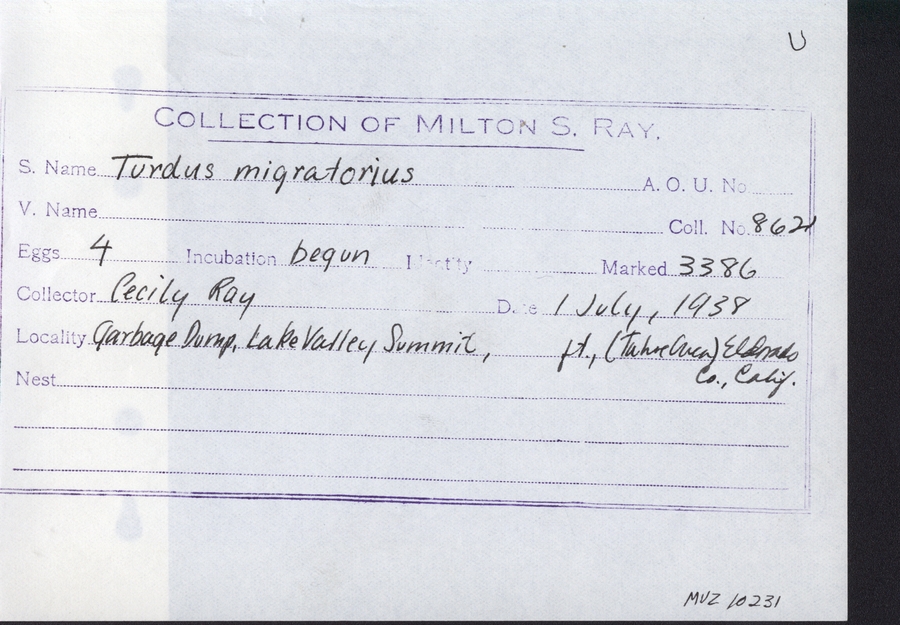 U
COLLECTION OF MILTON S. RAY.
S. Name Turdus migratorius A. O. U. No
V. Name Coll. No. 8621
Eggs 4 Incubation begun Marked 3386
Collector Cecily Ray Date 1 July, 1938
Locality Garbage Dump, Lake Valley Summit, ft., (Tahoe Area) Eldorado
Co., Calif.
Nest
MVZ 10231